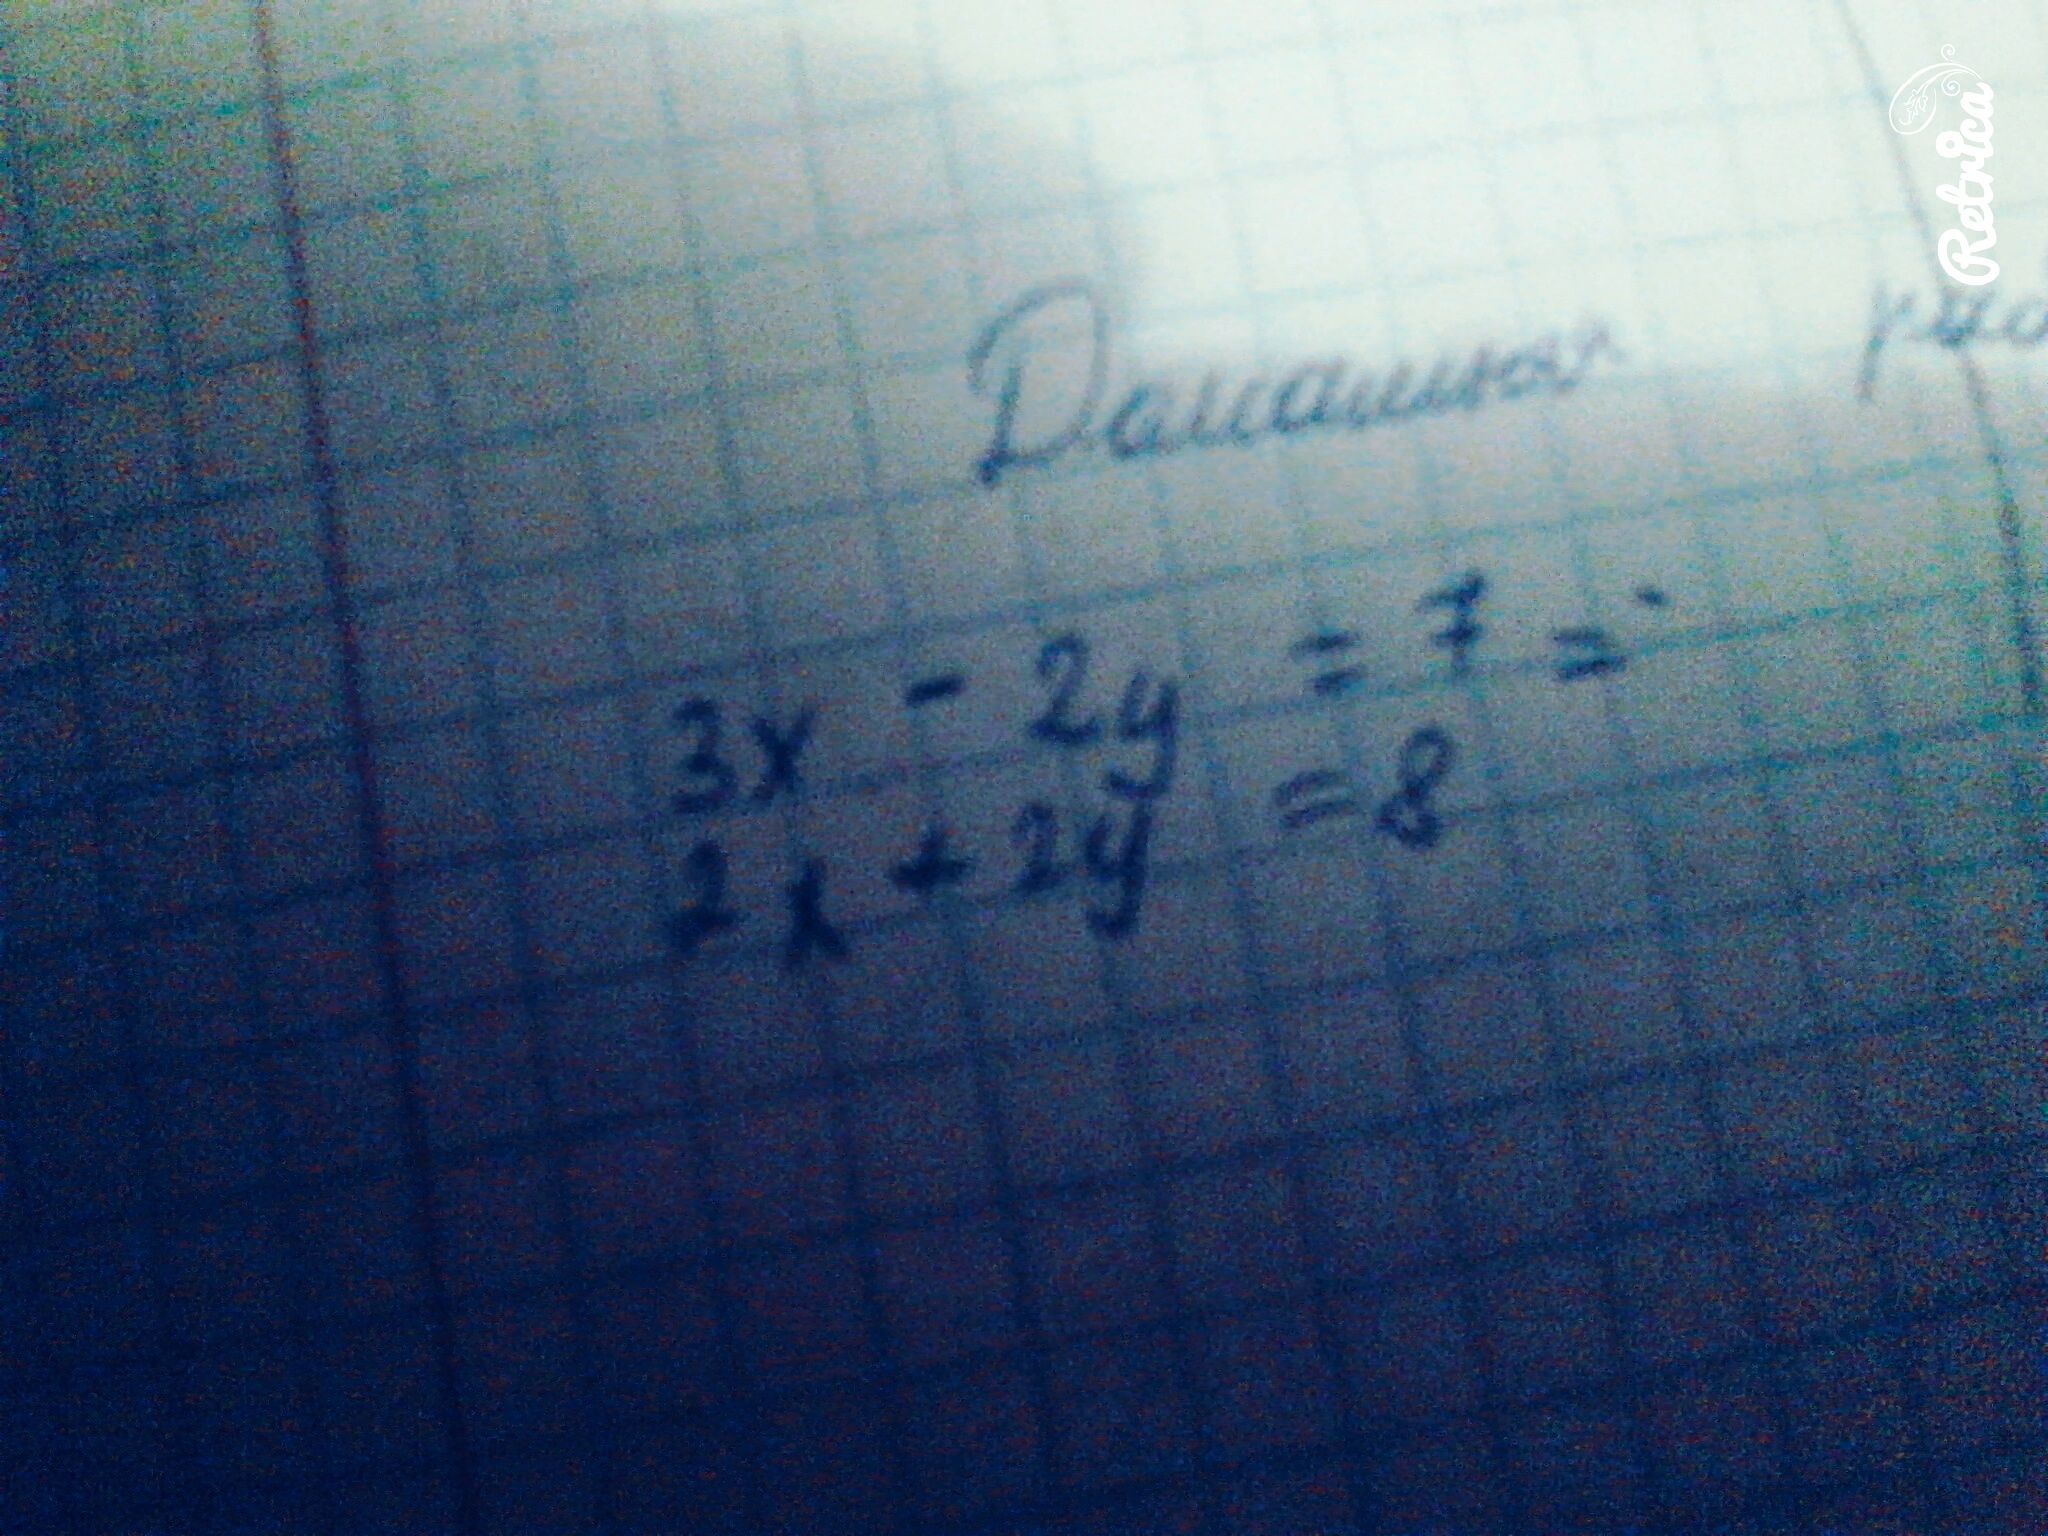 Retrica
Домашняя
3x - 2y = 7 =
2x + 2y = 8